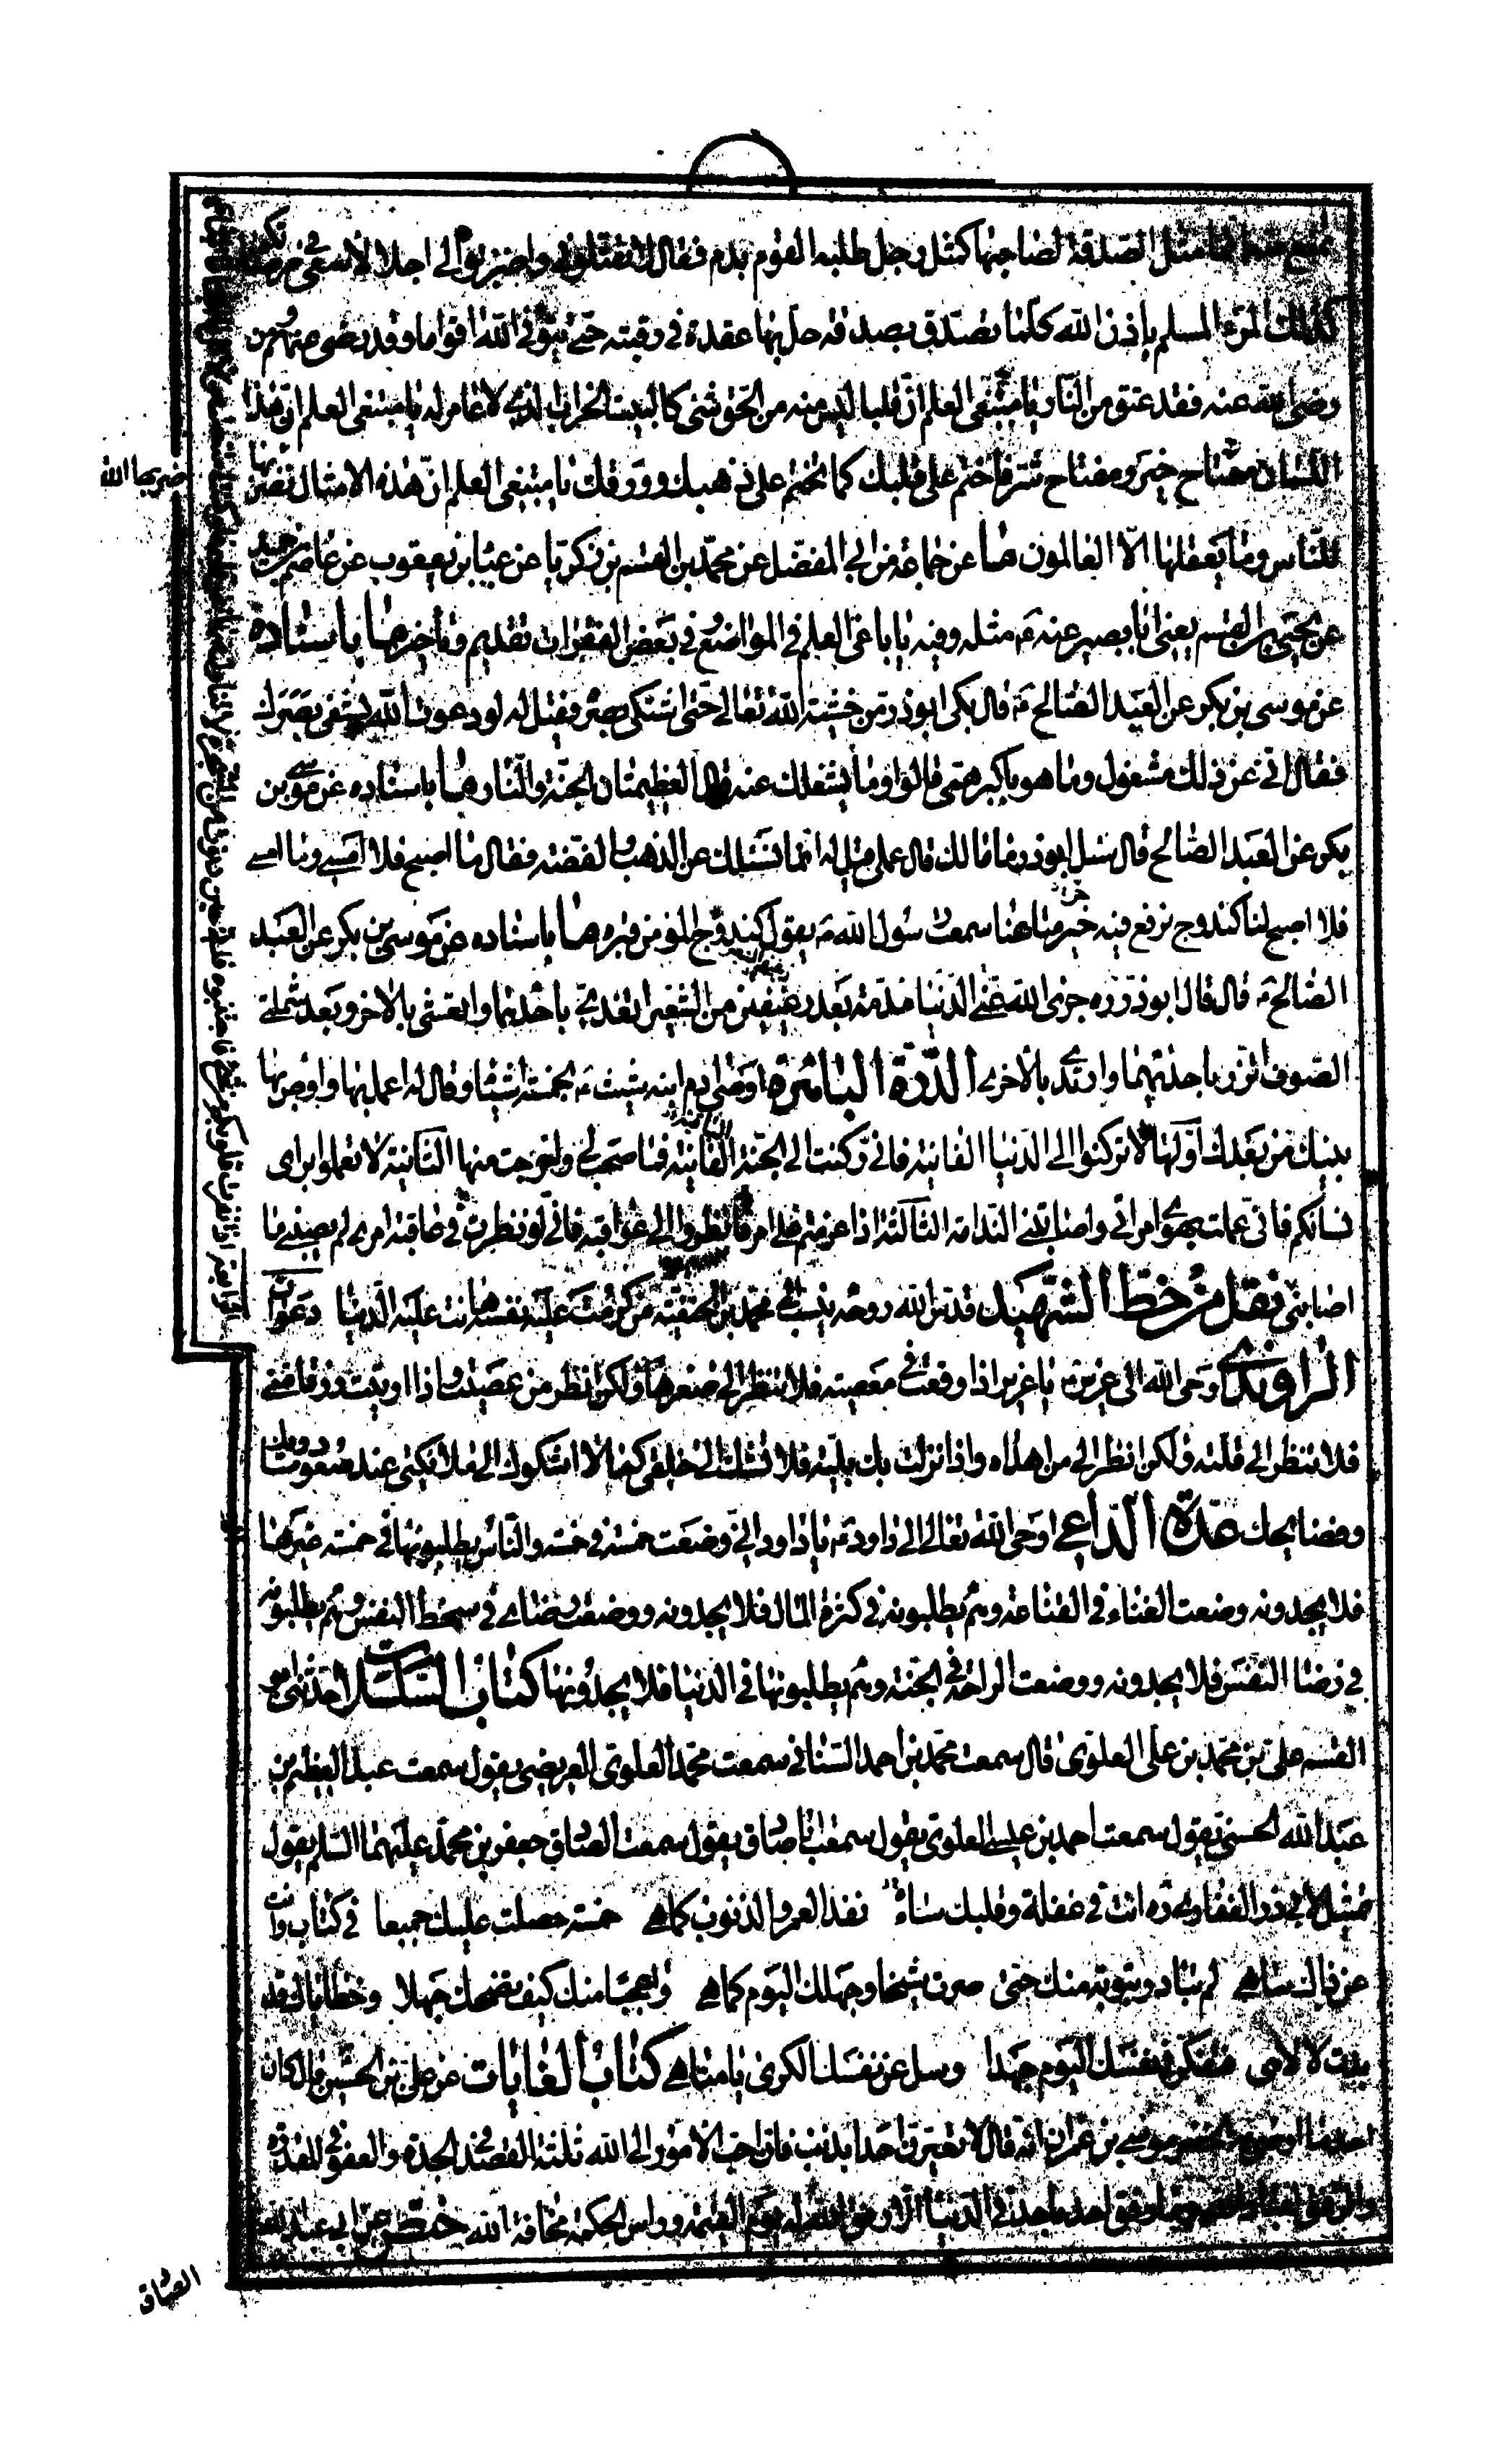 مثل الصدقة لصاحبها كمثل رجل طلبه القوم بدم فقال لا تقتلوني واضربوا لي اجلا لاسعى في مرضاتكم
كذلك المرء المسلم باذن الله كلما تصدق بصدقة حل بها عقدة في رقبته حتى يتوفى الله اقواما وقد رضي عنهم ومن
رضي الله عنه فقد عتق من النار يا مبتغي العلم ان قلبا ليس فيه من الحق شئ كالبيت الخراب الذي لا عامر له يا مبتغي العلم ان هذا
اللسان مفتاح خير ومفتاح شر فاختم على قلبك كما تختم على ذهبك وورقك يا مبتغي العلم ان هذه الامثال نضربها
للناس وما يعقلها الا العالمون ما عن جماعة عن ابي المفضل عن محمد بن القسم بن زكريا عن عباد بن يعقوب عن عاصم بن حميد
عن يحيى بن القسم يعني ابا بصير عنه ع مثله وفيه يا باغي العلم في المواضع وفي بعض الفقرات تقديم وتأخير ما باسناده
عن موسى بن بكر عن العبد الصالح ع قال بكى ابو ذر من خشية الله تعالى حتى اشتكى بصره فقيل له لو دعوت الله يشفي بصرك
فقال اني عن ذلك مشغول وما هو باكبر همي قالوا وما يشغلك عنه قال العظيمتان الجنة والنار ما باسناده عن موسى بن
بكر عن العبد الصالح قال سئل ابو ذر ما مالك قال عملي قيل له انما نسئلك عن الذهب والفضة فقال ما اصبح فلا امسي وما امسى
فلا اصبح لنا كندوج نرفع فيه خير متاعنا سمعت رسول الله ص يقول كندوج المؤمن قبره ما باسناده عن موسى بن بكر عن العبد
الصالح ع قال قال ابو ذر ره جزى الله عني الدنيا مذمة بعد رغيفين من الشعير اتغدى باحدهما واتعشى بالاخر وبعد شملتي
الصوف اتزر باحديهما وارتدي بالاخرى الدرة الباهرة اوصى ادم ابنه شيث ع بخمسة اشياء وقال له اعمل بها واوص بها
بنيك من بعدك اولها لا تركنوا الى الدنيا الفانية فاني ركنت الى الجنة الباقية فما صحب لي واخرجت منها الثانية لا تعملوا براى
نسائكم فاني عملت بهوى امراتي واصابتني الندامة الثالثة اذا عزمتم على امر فانظروا الى عواقبه فاني لو نظرت في عاقبة امري لم يصبني ما
اصابني نقل من خط الشهيد قدس الله روحه ينسب الى محمد بن الحنفية من كرمت عليه نفسه هانت عليه الدنيا دعوات
الراوندي اوحى الله الى عزير ع يا عزير اذا وقعت في معصية فلا تنظر الى صغرها ولكن انظر من عصيت واذا اوتيت رزقا مني
فلا تنظر الى قلته ولكن انظر الى من اهداه واذا نزلت بك بلية فلا تشك الى خلقي كما لا اشكوك الى ملائكتي عند صعود مساويك
وفضايحك عدة الداعي اوحى الله تعالى الى داود ع يا داود اني وضعت خمسة في خمسة والناس يطلبونها في خمسة غيرها
فلا يجدونه وضعت الغناء في القناعة وهم يطلبونه في كثرة المال فلا يجدونه ووضعت رضاي في سخط النفس وهم يطلبونه
في رضا النفس فلا يجدونه ووضعت الراحة في الجنة وهم يطلبونها في الدنيا فلا يجدونها كتاب المسلسلات حدثني ابو
القسم علي بن محمد بن علي العلوي قال سمعت محمد بن احمد السناني سمعت محمد العلوي العريضي يقول سمعت عبد العظيم بن
عبد الله الحسني يقول سمعت احمد بن عيسى العلوي يقول سمعت ابا صادق يقول سمعت الصادق جعفر بن محمد عليهما السلم يقول
مثل لابي ذر الغفاري ره انت في غفلة وقلبك ساه نفد العمر والذنوب كما هي خمسة حصلت عليك جميعا في كتاب وانت
عن ذاك ساهي لم تبادر بتوبة منك حتى صرت شيخا وجهلك اليوم كما هي واعجبا منك كيف تضحك جهلا وخطاياك قد
بدت لالاهي فتفكر في نفسك اليوم جهدا وسل عن نفسك الكرى يا متاهي كتاب الغايات عن علي بن الحسين قال كان
موسى بن عمران انه قال لا تعيرن احدا بذنب فان احب الامور الى الله ثلثة القصد في الجدة والعفو في المقدرة
وما رفق احد باحد في الدنيا الا رفق الله به يوم القيمة وراس الحكمة مخافة الله ختص عن ابي عبد الله
ضربها الله
الصادق